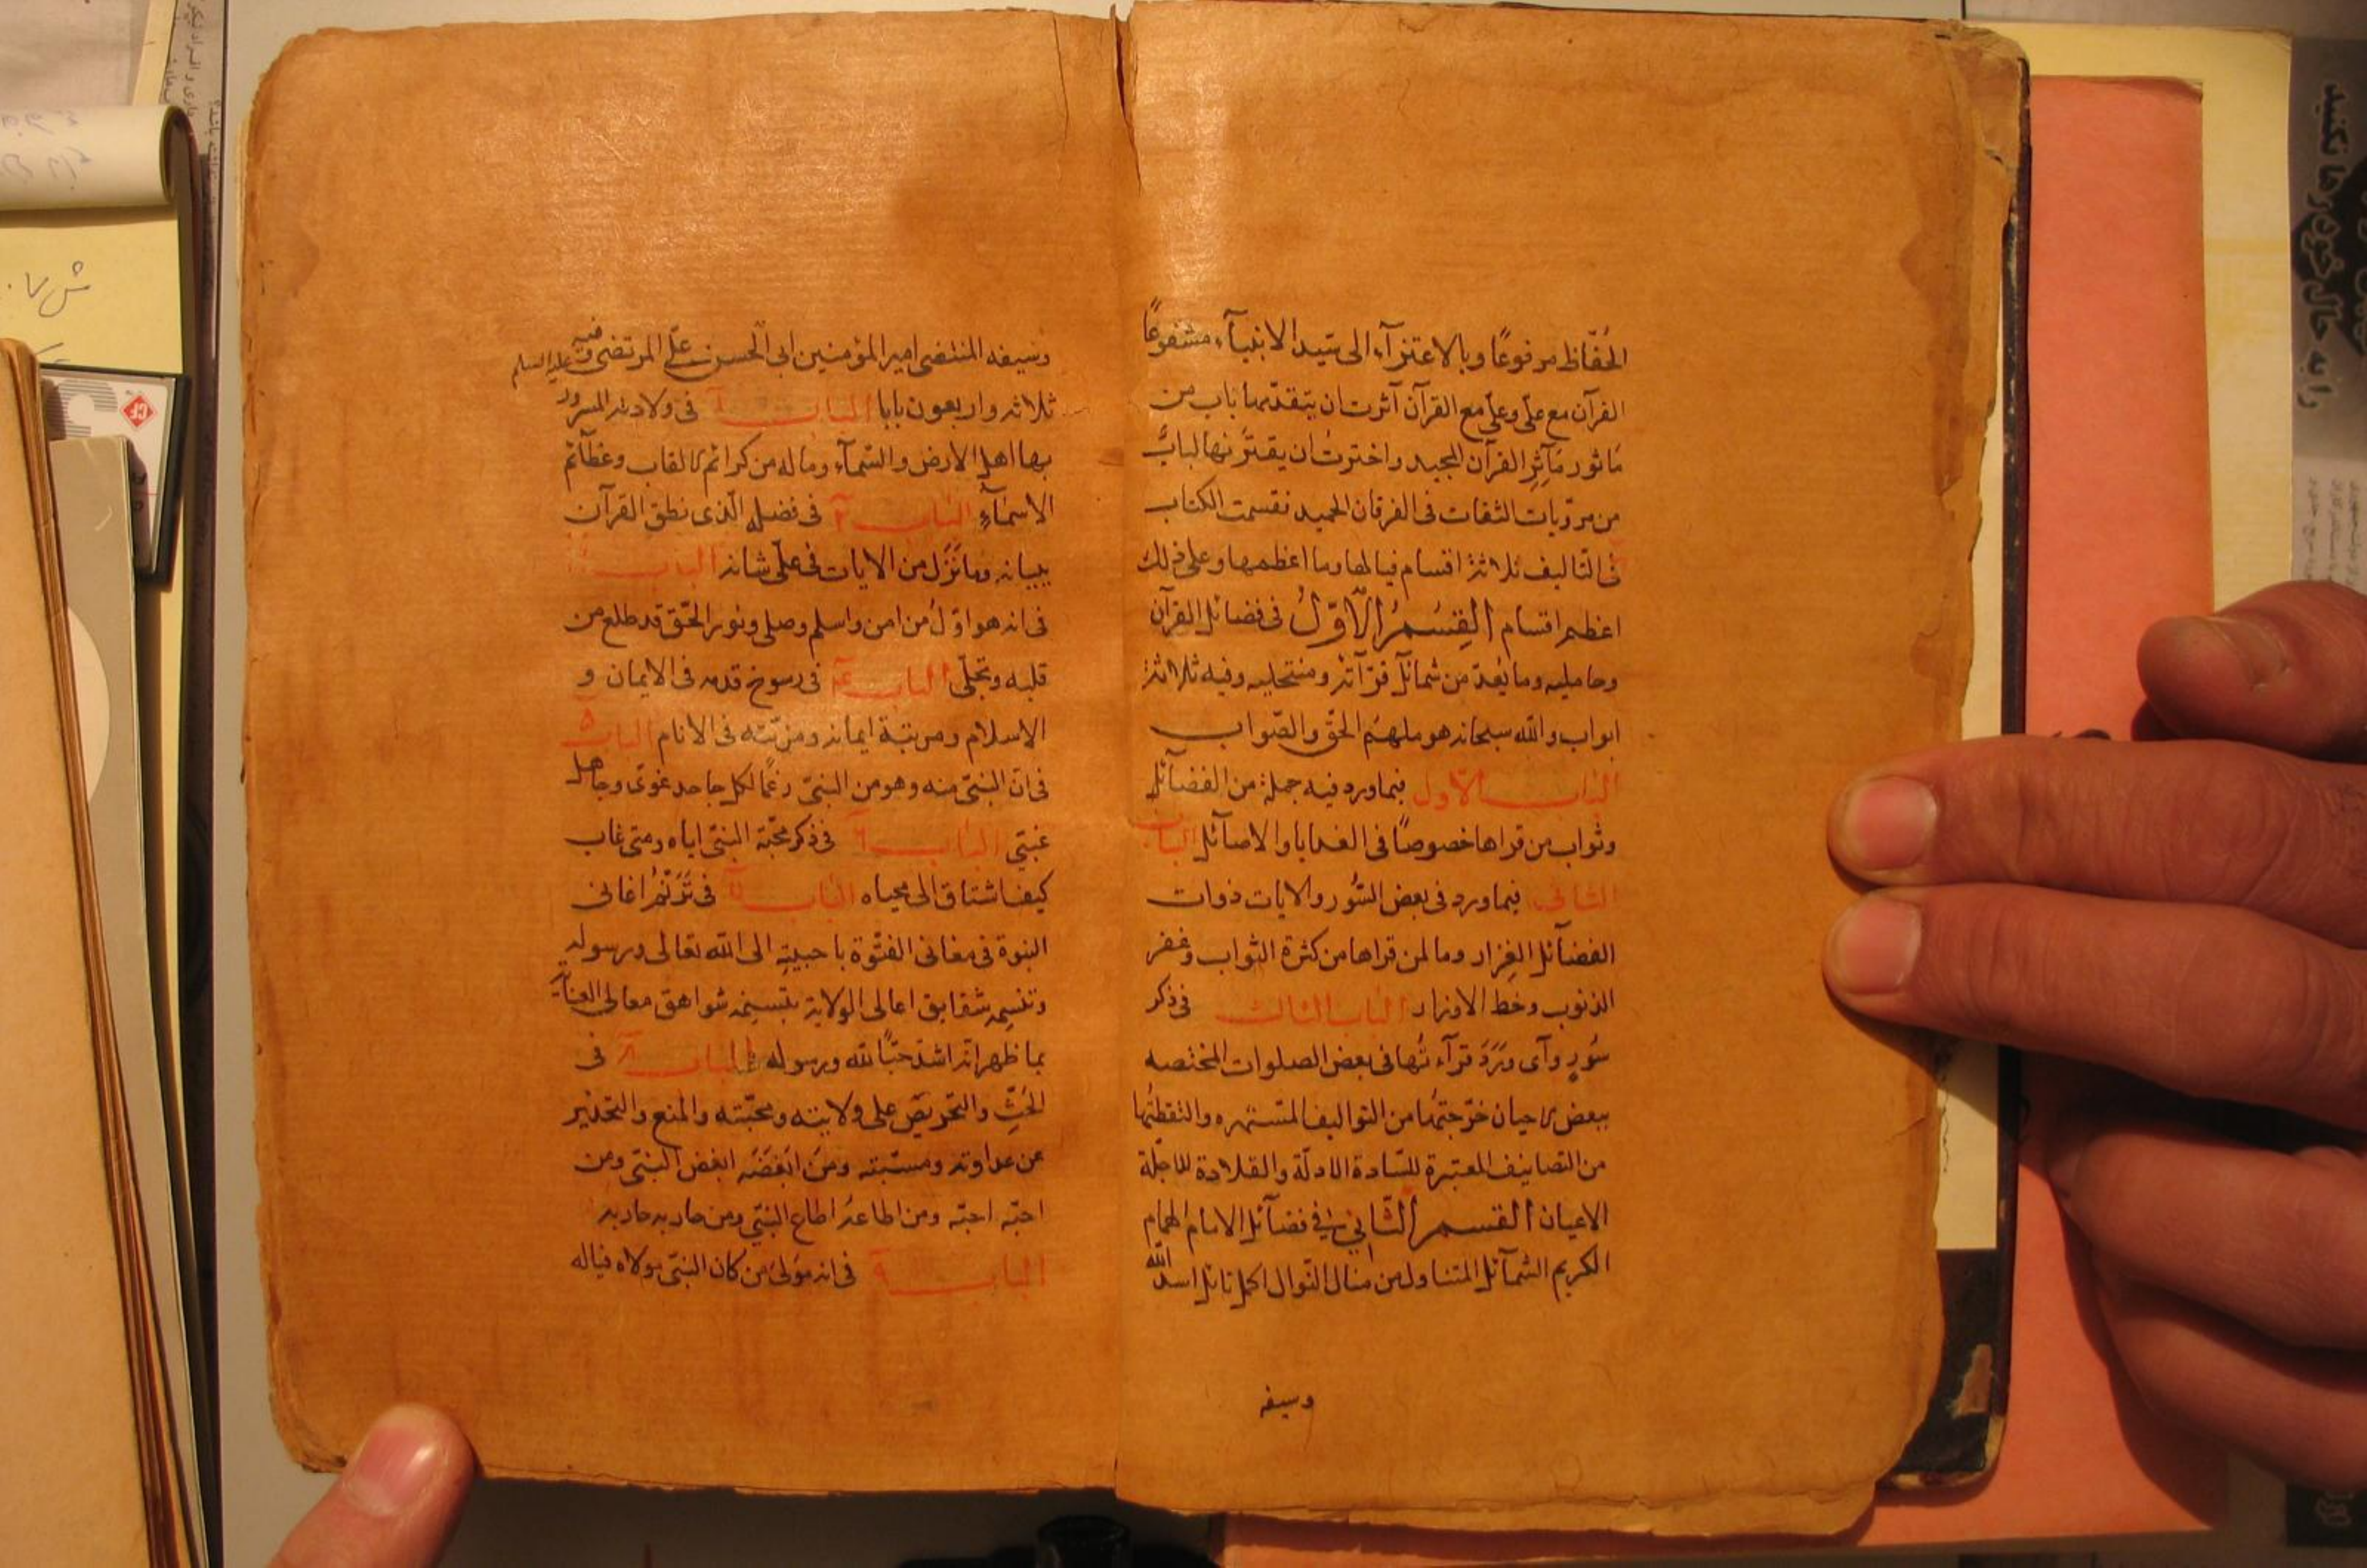 الحُفّاظ مرفوعًا وبالاعتزآء الى سيّد الانبيآء مشفوعًا
القرآن مع علّى وعلّى مع القرآن آثرت ان يتقدّمها باب من
مأثور مَآثِرِ القرآن المجيد واخترت ان يفترّ نهالبابٌ
من مرويات الثقات فى الفرقان الحميد فقسمت الكتاب
فى التاليف ثلاثة اقسام فيالها وما اعظمها وعلى ذلك
اعظم اقسام القِسُمُ الاَّوّلُ فى فضائل القرآن
وحامليه وما يُعدّ من شمائل قرّآئه ومنتحليه وفيه ثلاثة
ابواب والله سبحانه هو ملهم الحقّ والصّواب
الباب الاّول فيما ورد فيه جملة من الفضآئل
وثواب من قراها خصوصًا فى الغدايا والاصآئل الباب
الثانى فيما ورد فى بعض السُّور والايات ذوات
الفضآئل الغِزار وما لمن قراها من كثرة الثواب وغفر
الذنوب وحَط الاوزار الباب الثالث فى ذكر
سُوَرٍ وآى وَرَدَ قرآءتُها فى بعض الصلوات المختصه
ببعض الاحيان خرّجتُها من التواليف المشتهره والتقطتُها
من التصانيف المعتبرة للسّادة الادلّة والقلادة الاجلّة
الاعيان القسم الثّانى فى فضآئل الامام الهمام
الكريم الشمآئل المتناول من منال النّوال اكمل نائل اسد الله
وسيفه
وسيفه المنتضى امير المؤمنين ابى الحسن علّى المرتضى وفيه عليه السلم
ثلاثه واربعون بابا الباب ١ فى ولادته المسرور
بها اهل الارض والسّمآء وماله من كرائم الالقاب وعظآئم
الاسمآءِ الباب ٢ فى فضله الّذى نطق القرآن
ببيانه وما نَزَل من الايات فى علّى شانه الباب ٣
فى انه هو اوّل من امن واسلم وصلى ونور الحّق قد طلع من
قلبه وتجلّى الباب ٤ فى رسوخ قدمه فى الايمان و
الاسلام ومرتبة ايمانه ومزيّته فى الانام الباب ٥
فى انّ النبىّ منه وهو من النبىّ رغمًا لكل جاحد غوىّ وجاهل
غبىّ الباب ٦ فى ذكر محبّة النبىّ اياه ومتى غاب
كيف اشتاق الى محياه الباب ٧ فى تَرَنُّمُ اغانى
النبوة فى مغانى الفتّوة باحبيته الى الله تعالى ورسوله
وتنسمه شقايق اعالى الولاية بتسنمه شواهق معالى العنآية
بما ظهر انّه اشدّ حبًّا لله ورسوله الباب ٨ فى
الحَثِّ والتحريض على ولايته ومحبّته والمنع والتحذير
عن عداوته ومسبّته ومن ابَغضَه ابغض النبىّ ومن
احبّه احبّه ومن اطاعهُ اطاع النبىّ ومن حاربه حاربه
الباب ٩ فى انه مَولىَ من كان النبىّ مولاه فياله